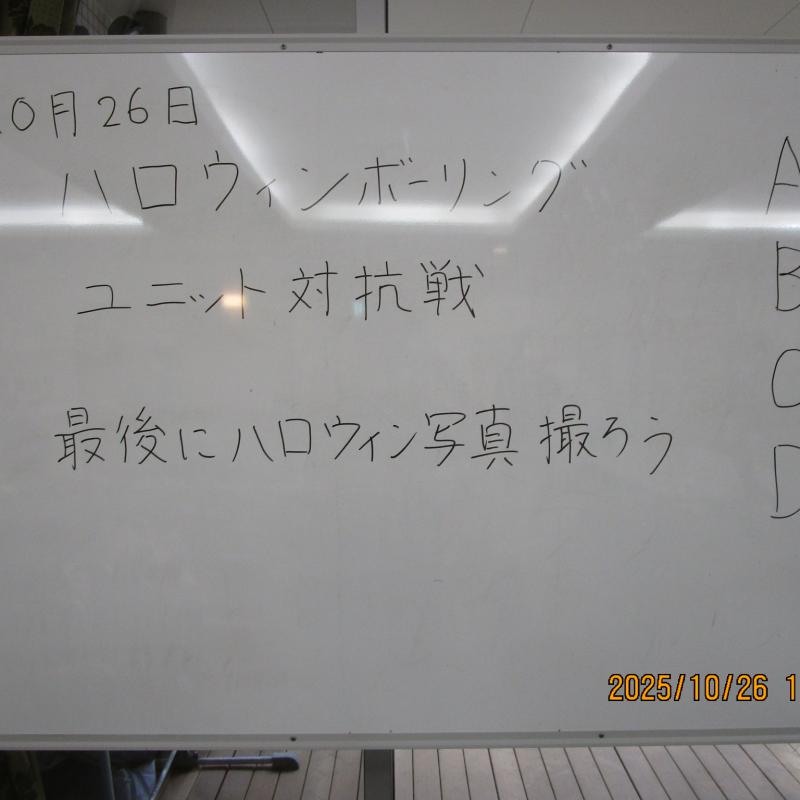 10月26日
ハロウィンボーリング
ユニット対抗戦
最後にハロウィン写真撮ろう
A
B
C
D
2025/10/26 1